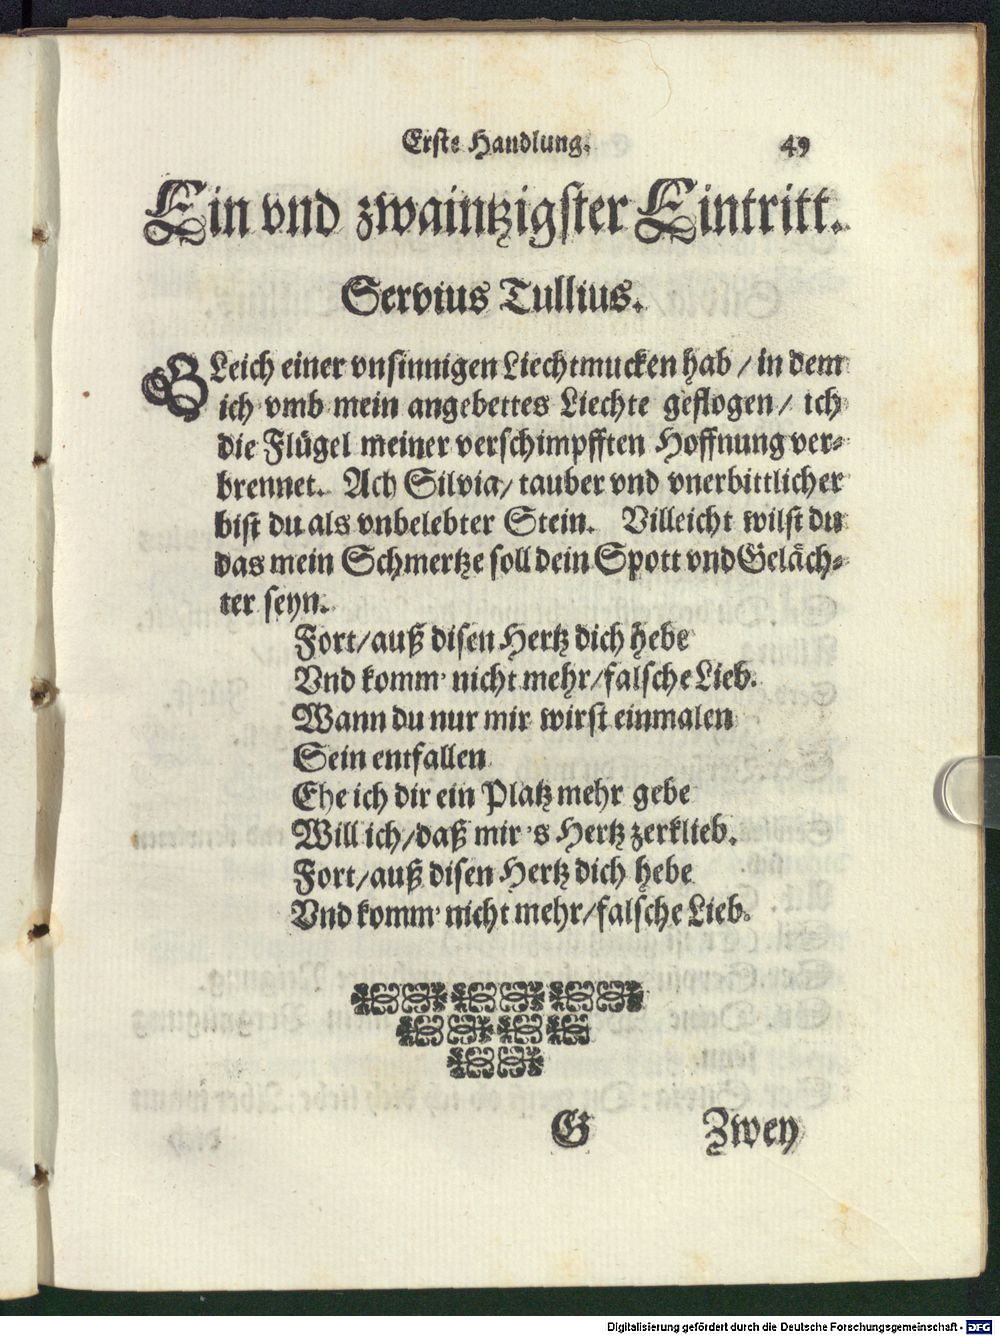 Erste Handlung. 49
Ein vnd zwaintzigster Eintritt.
Servius Tullius.
GLeich einer vnsinnigen Liechtmucken hab / in dem
ich vmb mein angebettes Liechte geflogen / ich
die Flügel meiner verschimpfften Hoffnung ver-
brennet. Ach Silvia / tauber vnd vnerbittlicher
bist du als vnbelebter Stein. Villeicht wilst du
das mein Schmertze soll dein Spott vnd Geläch-
ter seyn.
Fort / auß disen Hertz dich hebe
Vnd komm' nicht mehr / falsche Lieb.
Wann du nur mir wirst einmalen
Sein entfallen
Ehe ich dir ein Platz mehr gebe
Will ich / daß mir's Hertz zerklieb.
Fort / auß disen Hertz dich hebe
Vnd komm' nicht mehr / falsche Lieb.
G Zwey
Digitalisierung gefördert durch die Deutsche Forschungsgemeinschaft - DFG